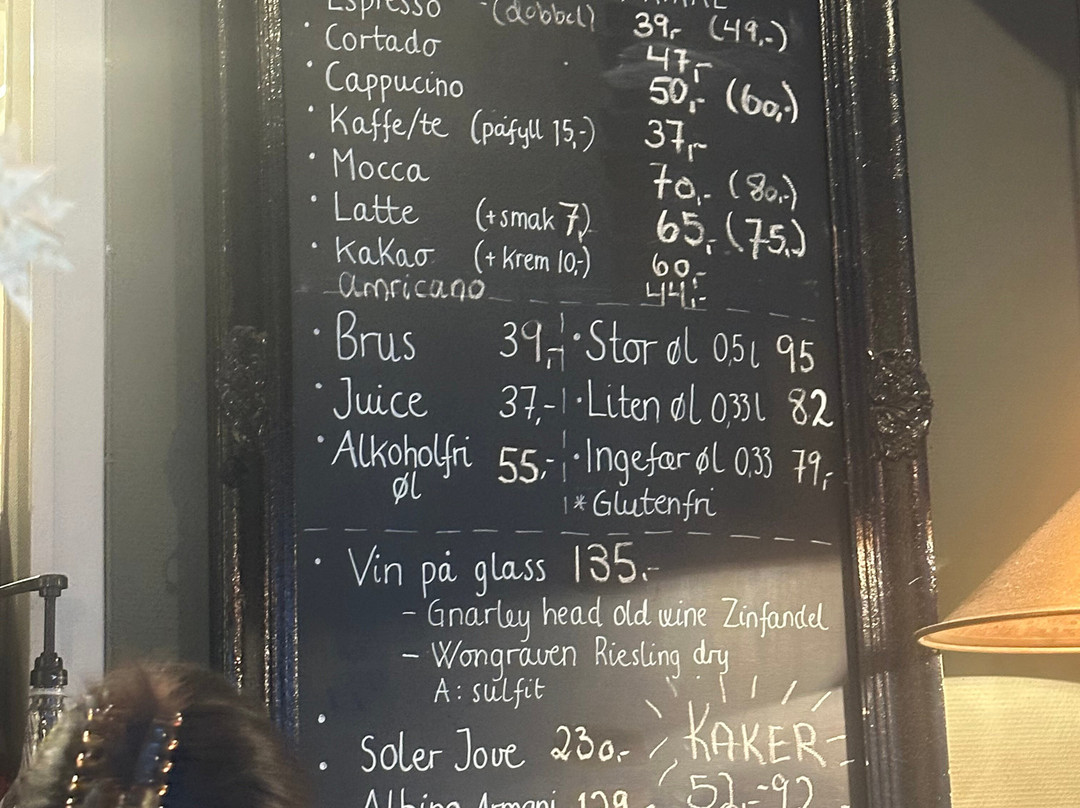 Espresso -(dobbel) 39,- (49,-)
· Cortado 47,-
· Cappucino 50,- (60,-)
· Kaffe/te (påfyll 15,-) 37,-
· Mocca 70,- (80,-)
· Latte (+smak 7,) 65,- (75,-)
· Kakao (+ Krem 10,-) 60,-
amricano 44,-
· Brus 39,-
· Juice 37,-
· Alkoholfri 55,-
øl
· Stor øl 0,5 l 95
· Liten øl 0,33 l 82
· Ingefær øl 0,33 79,-
* Glutenfri
· Vin på glass 135.-
- Gnarley head old wine Zinfandel
- Wongraven Riesling dry
A: sulfit
· Soler Jove 230.-
KAKER